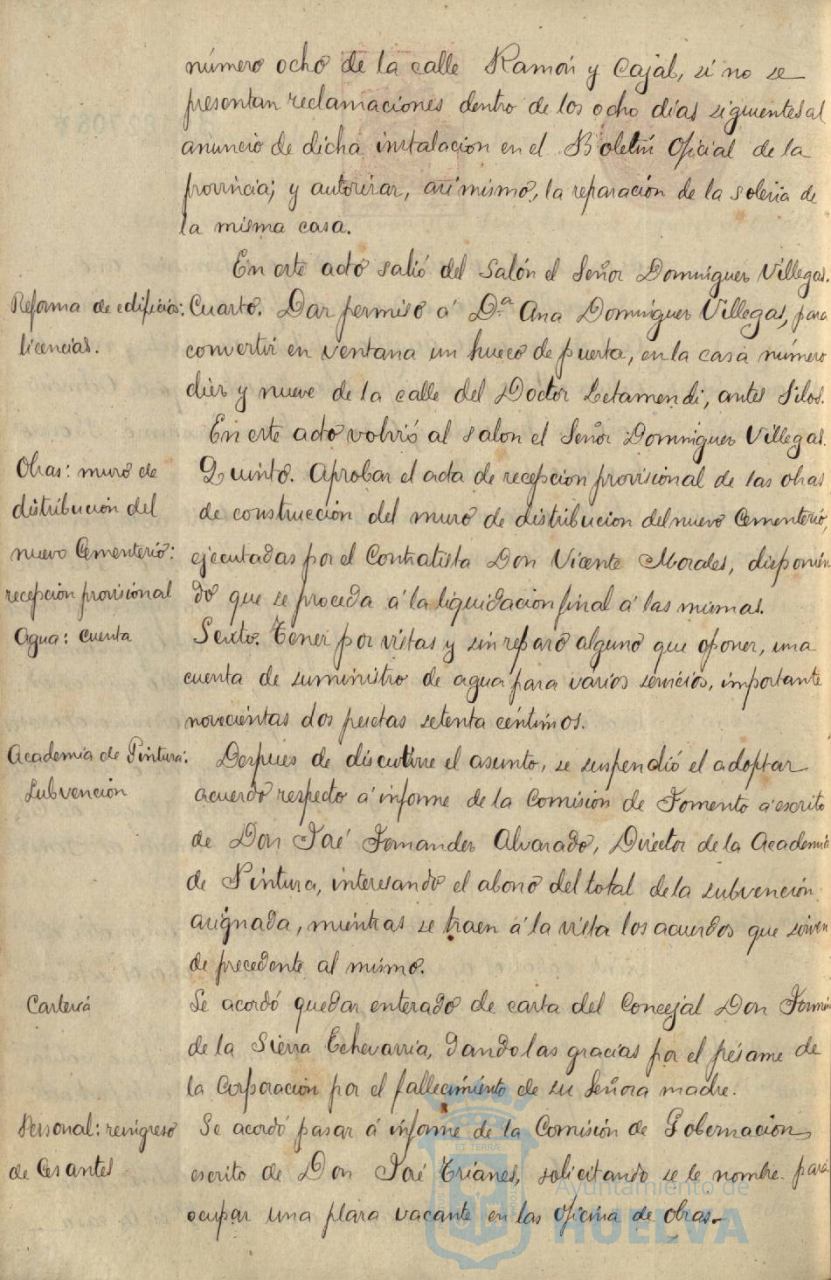 número ocho de la calle Ramón y Cajal, si no se
presentan reclamaciones dentro de los ocho días siguientes al
anuncio de dicha instalación en el Boletín Oficial de la
provincia; y autorizar, asimismo, la reparación de la solería de
la misma casa.
En este acto salió del salón el Señor Domínguez Villegas.
Reforma de edificios:
licencias.
Cuarto. Dar permiso á D.ª Ana Domínguez Villegas, para
convertir en ventana un hueco de puerta, en la casa número
diez y nueve de la calle del Doctor Letamendi, antes Silos.
En este acto volvió al salon el Señor Domínguez Villegas.
Obras: muro de
distribución del
nuevo Cementerio:
recepción provisional
Quinto. Aprobar el acta de recepción provisional de las obras
de construcción del muro de distribucion del nuevo Cementerio,
ejecutadas por el Contratista Don Vicente Morales, disponien
do que se proceda á la liquidacion final á las mismas.
Agua: cuenta
Sexto. Tener por vistas y sin reparo alguno que oponer, una
cuenta de suministro de agua para varios servicios, importante
novecientas dos pesetas setenta céntimos.
Academia de Pintura:
Subvención
Despues de discutirse el asunto, se suspendió el adoptar
acuerdo respecto á informe de la Comisión de Fomento á escrito
de Don José Fernandez Alvarado, Director de la Academia
de Pintura, interesando el abono del total de la subvención
asignada, mientras se traen á la vista los acuerdos que sirven
de precedente al mismo.
Cartería
Se acordó quedar enterado de carta del Concejal Don
de la Sierra Echevarría, dando las gracias por el pésame de
la Corporación por el fallecimiento de su Señora madre.
Personal: reingreso
de Cesantes
Se acordó pasar á informe de la Comisión de Gobernacion,
escrito de Don José Trianes, solicitando se le nombre para
ocupar una plaza vacante en las oficina de obras.
Ayuntamiento de
HUELVA